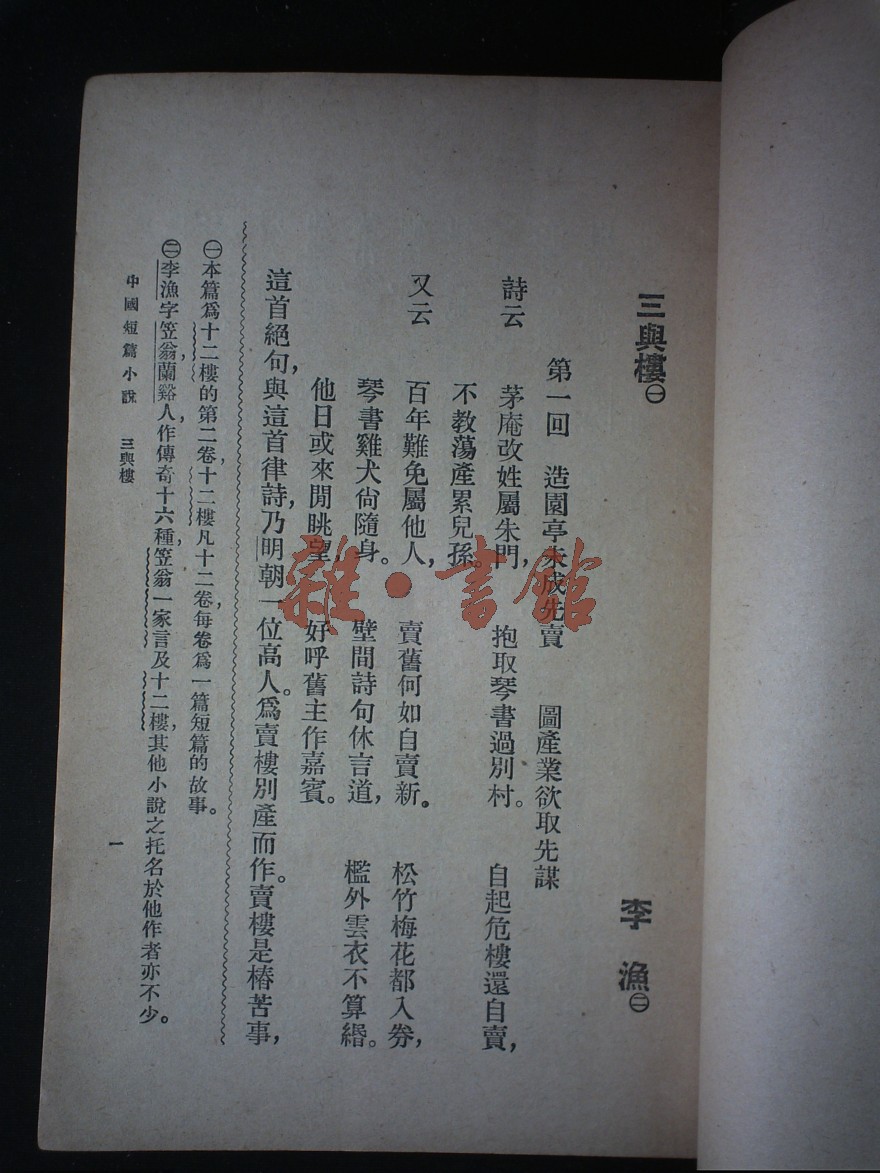 三與樓㊀
李漁㊁
第一回 造園亭未成先賣 圖產業欲取先謀
詩云 茅庵改姓屬朱門, 抱取琴書過別村。 自起危樓還自賣,
不教蕩產累兒孫。
又云 百年難免屬他人, 賣舊何如自賣新。 松竹梅花都入券,
琴書雞犬尙隨身。 壁間詩句休言道, 檻外雲衣不算緡。
他日或來閒眺望, 好呼舊主作嘉賓。
這首絕句,與這首律詩,乃明朝一位高人。爲賣樓別產而作。賣樓是樁苦事,
㊀本篇爲十二樓的第二卷,十二樓凡十二卷,每卷爲一篇短篇的故事。
㊁李漁字笠翁,蘭谿人,作傳奇十六種,笠翁一家言及十二樓,其他小說之托名於他作者亦不少。
中國短篇小說 三與樓
一
雜·書館